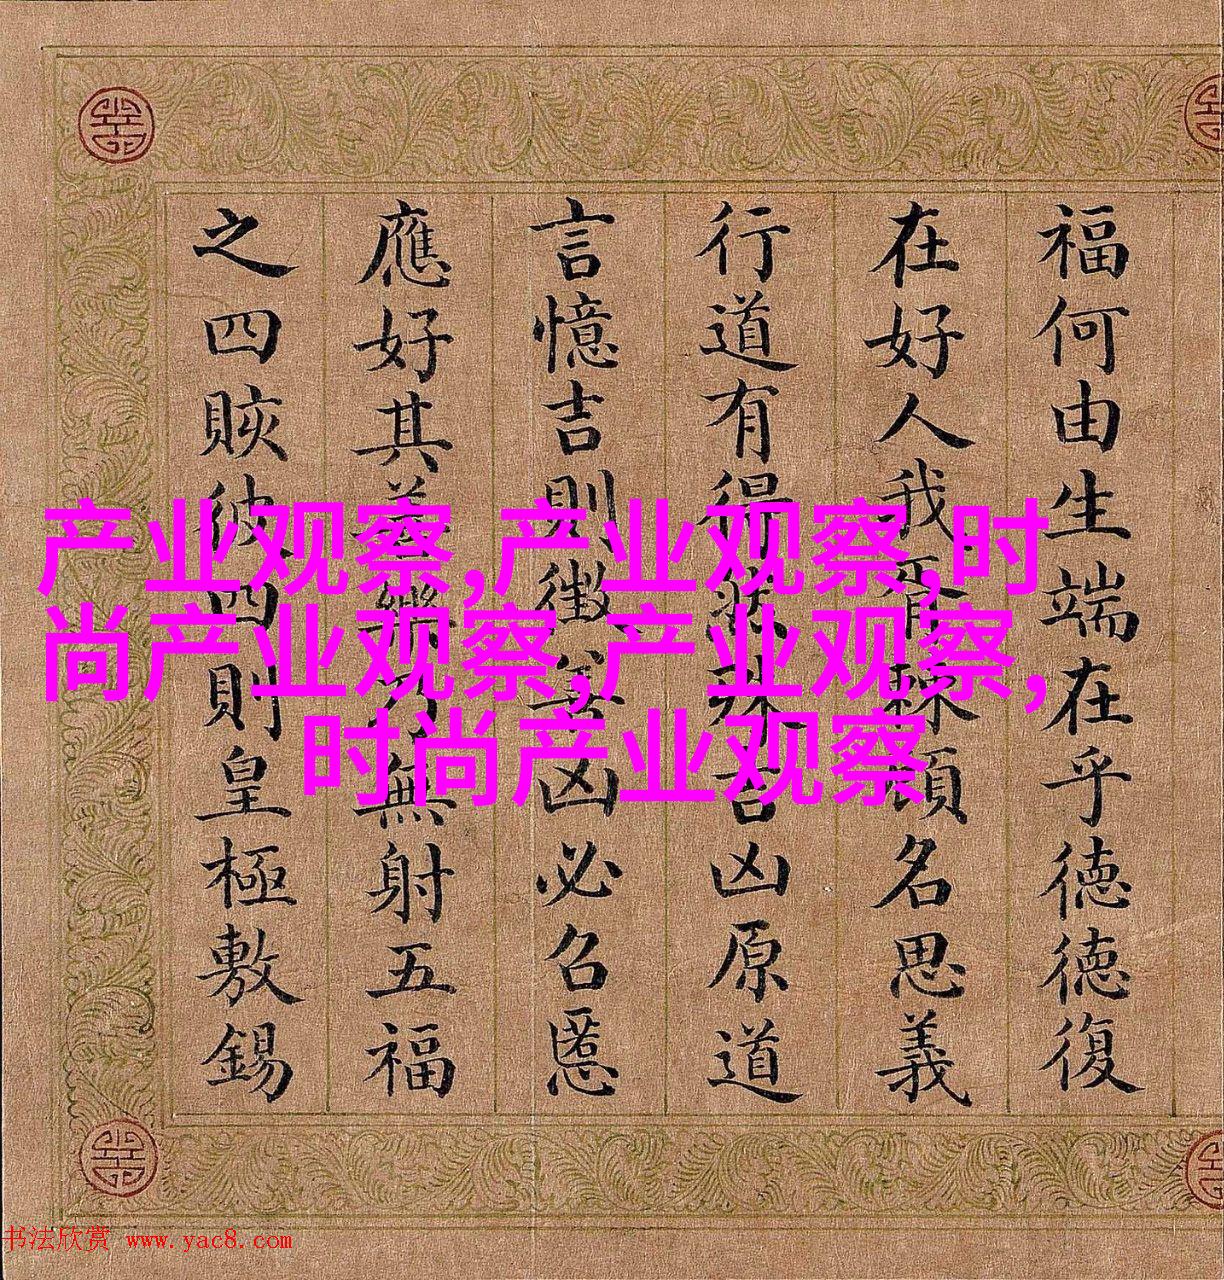 福何由生端在乎德德復
在好人我顧名思義
行道有得吉凶原道
言憶吉則徵善凶必召慝
應好其無射五福
之四賅彼四則皇極敷錫
产业观察,产业观察,时
尚产业观察,产业观察,
时尚产业观察
书法欣赏 www.yac8.com